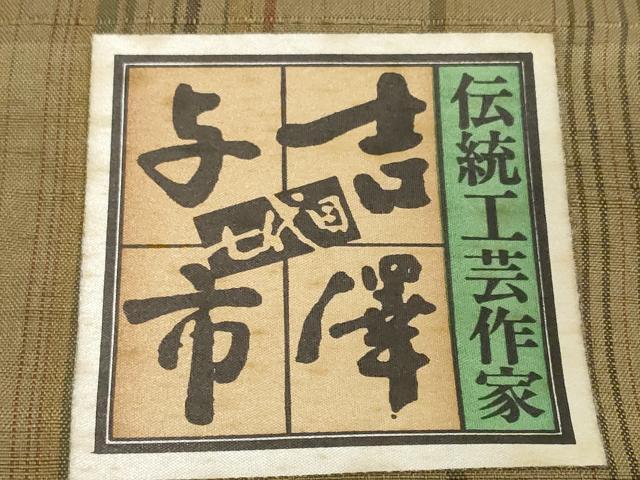 伝統工芸作家
吉澤
与市
七代目